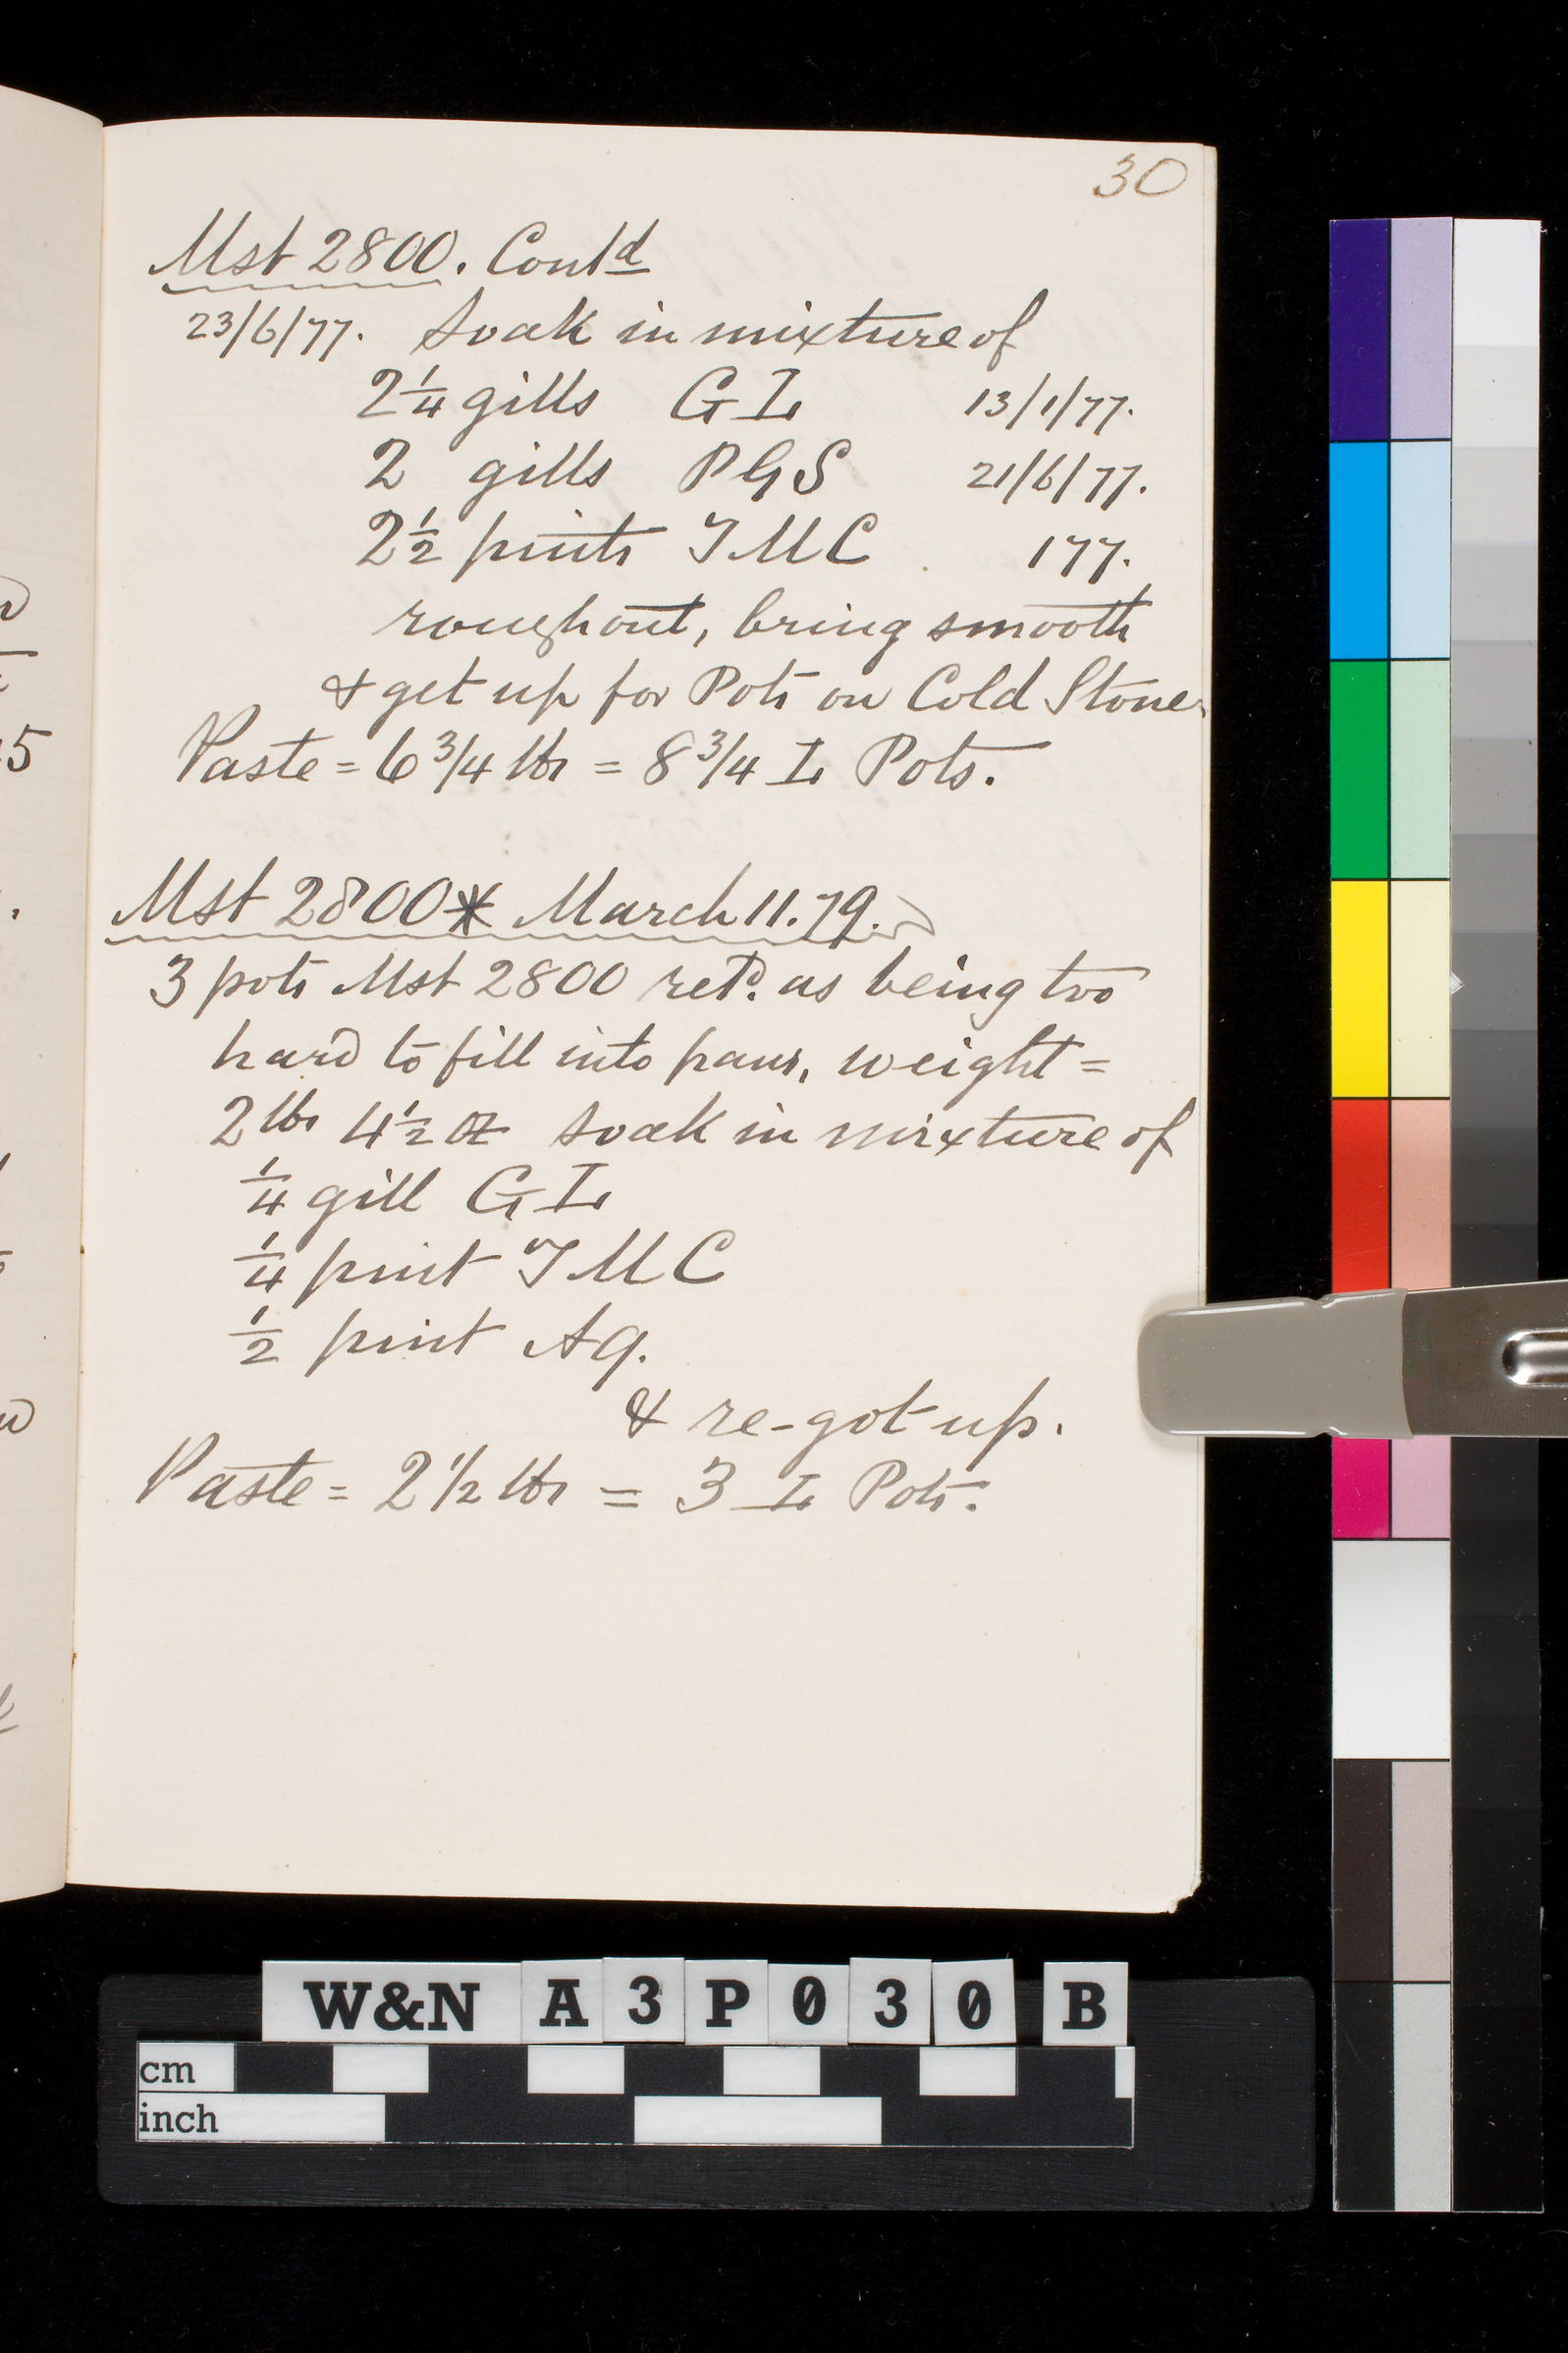 30
Mst 2800. Contd
23/6/77. Soak in mixture of
2 1/4 gills GL 13/1/77.
2 gills PGS 21/6/77.
2 1/2 pints TMC 177.
rough out, bring smooth
& get up for Pots on Cold Stone.
Paste = 6 3/4 lbs = 8 3/4 L Pots.
Mst 2800* March 11.79.
3 pots Mst 2800 retd. as being too
hard to fill into pans, weight =
2 lbs 4 1/2 oz soak in mixture of
1/4 gill GL
1/4 pint TMC
1/2 pint Aq.
& re-got up.
Paste = 2 1/2 lbs = 3 L Pots.
W&N A3P030 B
cm
inch